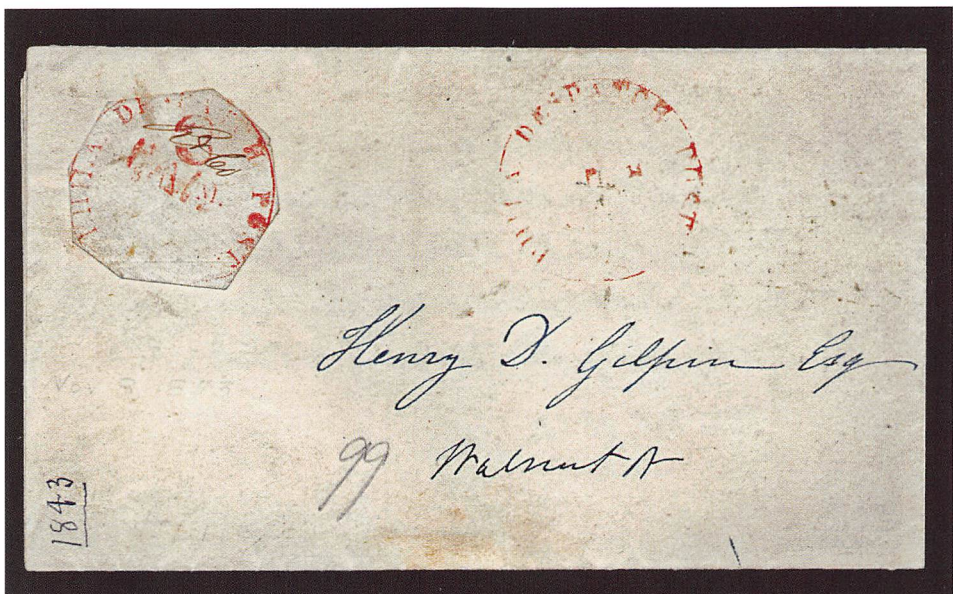 PHILA DESPATCH POST.
3
PHILA DESPATCH POST.
Henry D. Gilpin Esq
99 Walnut St
1843